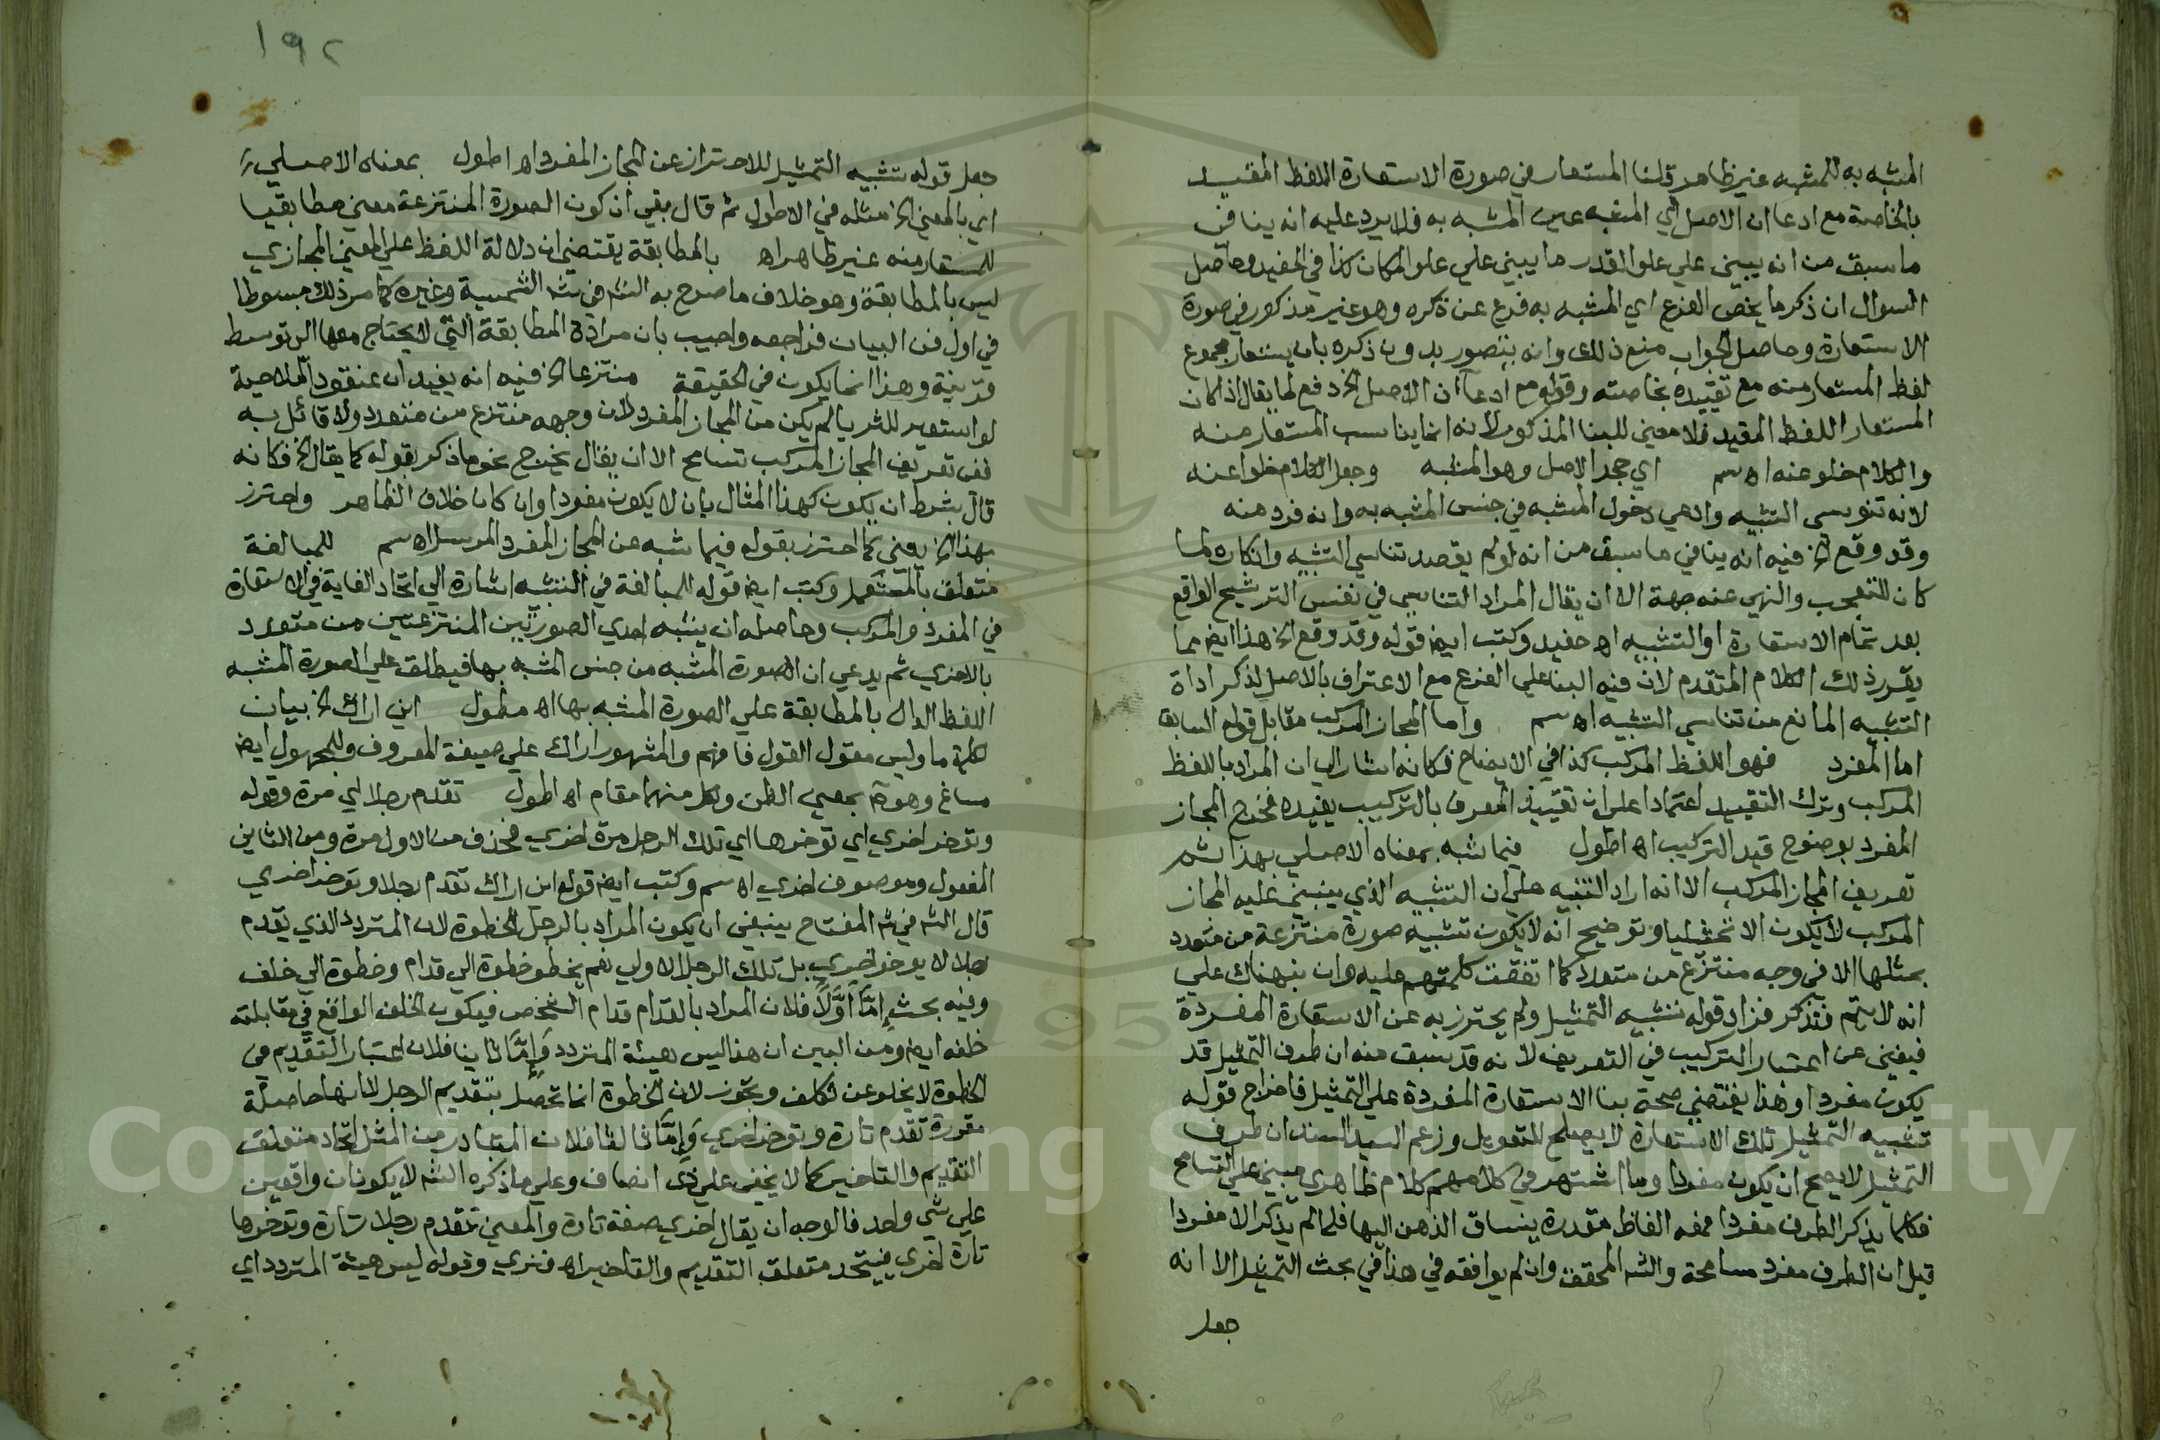 المشبه به للمشبه غير ظاهر قلنا المستعار في صورة الاستعارة اللفظ المقيد
بالخاصة مع ادعا ان الاصل اي المشبه عين المشبه به فلا يرد عليه انه ينافي
ما سبق من انه يبني علي علو القدر ما يبني علي علو المكان كذا في الحفيد وحاصل
السوال ان ذكر ما يخص الفرع اي المشبه به فرع عن ذكره وهو غير مذكور في صورة
الاستعارة وحاصل الجواب منع ذلك وانه يتصور بدون ذكره بان يستعار مجموع
لفظ المستعار منه مع تقييده بخاصته وقوله مع ادعا ان الاصل الخ دفع لما يقال اذا كان
المستعار اللفظ المقيد فلا معني للبنا المذكور لانه انما يناسب المستعار منه
والكلام خلو عنه اه سم اي جحد الاصل وهو المشبه وجعل الكلام خلوا عنه
لانه تنوسي التشبيه وادعي دخول المشبه في جنس المشبه به وانه فرد منه
وقد وقع الخ فيه انه ينافي ما سبق من انه لو لم يقصد تناسي التشبيه وانكاره لما
كان للتعجب والنهي عنه جهة الا ان يقال المراد التناسي في نفس الترشيح الواقع
بعد تمام الاستعارة او التشبيه اه حفيد وكتب ايض قوله وقد وقع الخ هذا ايض مما
يقرر ذلك الكلام المتقدم لان فيه البنا علي الفرع مع الاعتراف بالاصل لذكر اداة
التشبيه المانع من تناسي التشبيه اه سم واما المجاز المركب مقابل قوله السابق
اما المفرد فهو اللفظ المركب كذا في الايضاح فكانه اشار الي ان المراد باللفظ
المركب وترك التقييد اعتمادا علي ان تقييد المعرف بالتركيب يفيده فخرج المجاز
المفرد بوضوح قيد التركيب اه اطول فيما شبه بمعناه الاصلي بهذا تم
تعريف المجاز المركب الا انه اراد التنبيه علي ان التشبيه الذي يبني عليه المجاز
المركب لا يكون الا تمثيليا وتوضيح انه لا يكون تشبيه صورة منتزعة من متعدد
بمثلها الا في وجه منتزع من متعدد كما اتفقت كلمتهم عليه وان نبهناك علي
انه لا يتم فتذكر فزاد قوله تشبيه التمثيل ولم يحترز به عن الاستعارة المفردة
فيغني عن اعتبار التركيب في التعريف لانه قد سبق منه ان طرف التمثيل قد
يكون مفردا وهذا يقتضي صحة بنا الاستعارة المفردة علي التمثيل فاخراج قوله
تشبيه التمثيل تلك الاستعارة لا يصلح للتعويل وزعم السيد السند ان طرف
التمثيل لا يصح ان يكون مفردا وما اشتهر في كلامهم كلام ظاهري مبني علي التسامح
فكلما يذكر الطرف مفردا فمعه الفاظ مقدرة ينساق الذهن اليها فلما لم يذكر الا مفردا
قيل ان الطرف مفرد مسامحة والش المحقق وان لم يوافقه في هذا في بحث التمثيل الا انه
جعل
١٩٢
جعل قوله تشبيه التمثيل للاحتراز عن المجاز المفرد اه اطول بمعناه الاصلي
اي بالمعني الخ مثله في الاطول ثم قال بقي ان كون الصورة المنتزعة معني مطابقيا
للمستعار منه غير ظاهر اه بالمطابقة يقتضي ان دلالة اللفظ علي المعني المجازي
ليس بالمطابقة وهو خلاف ما صرح به الش في ش الشمسية وغيره كما مر ذلك مبسوطا
في اول فن البيان فراجعه واجيب بان مراده المطابقة التي لا يحتاج معها الي توسط
قرينة وهذا انما يكون في الحقيقة منتزعا الخ فيه انه يفيد ان عنقود الملاحية
لو استعير للثريا لم يكن من المجاز المفرد لان وجهه منتزع من متعدد ولا قائل به
ففي تعريف المجاز المركب تسامح الا ان يقال يخرج نحو ما ذكر بقوله كما يقال الخ فكانه
قال بشرط ان يكون كهذا المثال بان لا يكون مفردا وان كان خلاف الظاهر واحترز
بهذا الخ يعني كما احترز بقوله فيما شبه عن المجاز المفرد المرسل اه سم للمبالغة
متعلق بالمستعمل وكتب ايض قوله للمبالغة في التشبه اشارة الي اتحاد الغاية في الاستعارة
في المفرد والمركب وحاصله ان يشبه احدي الصورتين المنتزعتين من متعدد
بالاخري ثم يدعي ان الصورة المشبه من جنس المشبه بها فيطلق علي الصورة المشبه
اللفظ الدال بالمطابقة علي الصورة المشبه بها اه مطول اني اراك الخ بيان
لكلمة ما وليس مقول القول فافهم والمشهور اراك علي صيغة المعروف وللمجهول ايض
مساغ وهو ثم بمعني الظن ولكل منهما مقام اه اطول تقدم رجلا اي مرة وقوله
وتوخر اخري اي توخرها اي تلك الرجل مرة اخري فحذف من الاول مرة ومن الثاني
المفعول وموصوف اخري اه سم وكتب ايض قوله اني اراك تقدم رجلا وتوخر اخري
قال الش في ش المفتاح ينبغي ان يكون المراد بالرجل الخطوة لان المتردد الذي يقدم
رجلا لا يوخر اخري بل تلك الرجل الاولي نعم يخطو خطوة الي قدام وخطوة الي خلف
وفيه بحث اِمَّا اَوَّلًا فلان المراد بالقدام قدام الشخص فيكون الخلف الواقع في مقابلته
خلفه ايض ومن البين ان هذا ليس هيئة المتردد وَاِمَّا ثانيا فلان اعتبار التقديم في
الخطوة لا يخلو عن تكلف وتجوز لان الخطوة انما تحصل بتقديم الرجل لا انها حاصلة
مقررة تقدم تارة وتوخر اخري وَاِمَّا ثالثا فلان المتبادر من المثل اتحاد متعلق
التقديم والتاخير كما لا يخفي علي ذي انصاف وعلي ما ذكره الش لا يكونان واقعين
علي شي واحد فالوجه ان يقال اخري صفة تارة والمعني تقدم رجلا تارة وتوخرها
تارة اخري فيتحد متعلق التقديم والتاخير اه فنري وقوله ليس هيئة المتردد اي